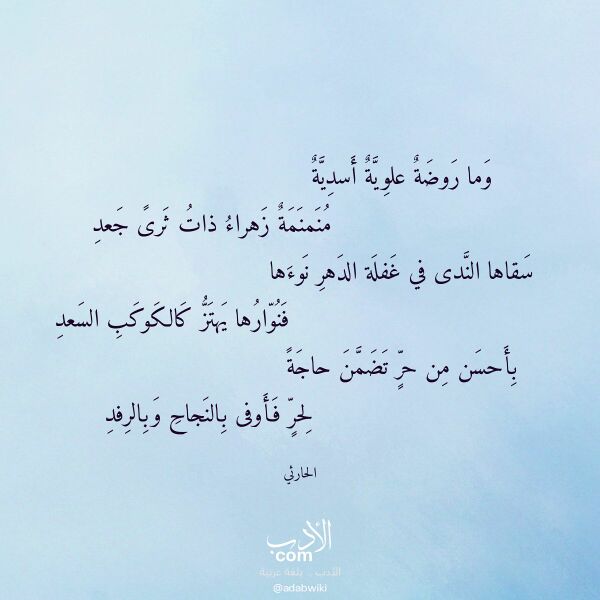 وَما رَوضَةٌ علوِيَّةٌ أَسدِيَّةٌ
مُنَمنَمَةٌ زَهراءُ ذاتُ ثَرىً جَعدِ
سَقاها النَّدى في غَفلَة الدَهرِ نَوءَها
فَنُوّارُها يَهتَزُّ كَالكَوكَبِ السَعدِ
بِأَحسَن مِن حرٍّ تَضَمَّنَ حاجَةً
لِحرٍّ فَأَوفى بِالنَجاحِ وَبِالرِفدِ
الحارثي
الأدب
com
الأدب .. بلغة عربية
@adabwiki